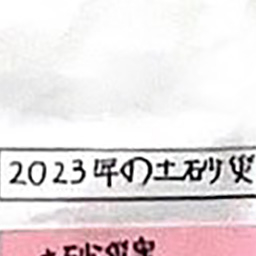 2023年の土砂災
土砂災害